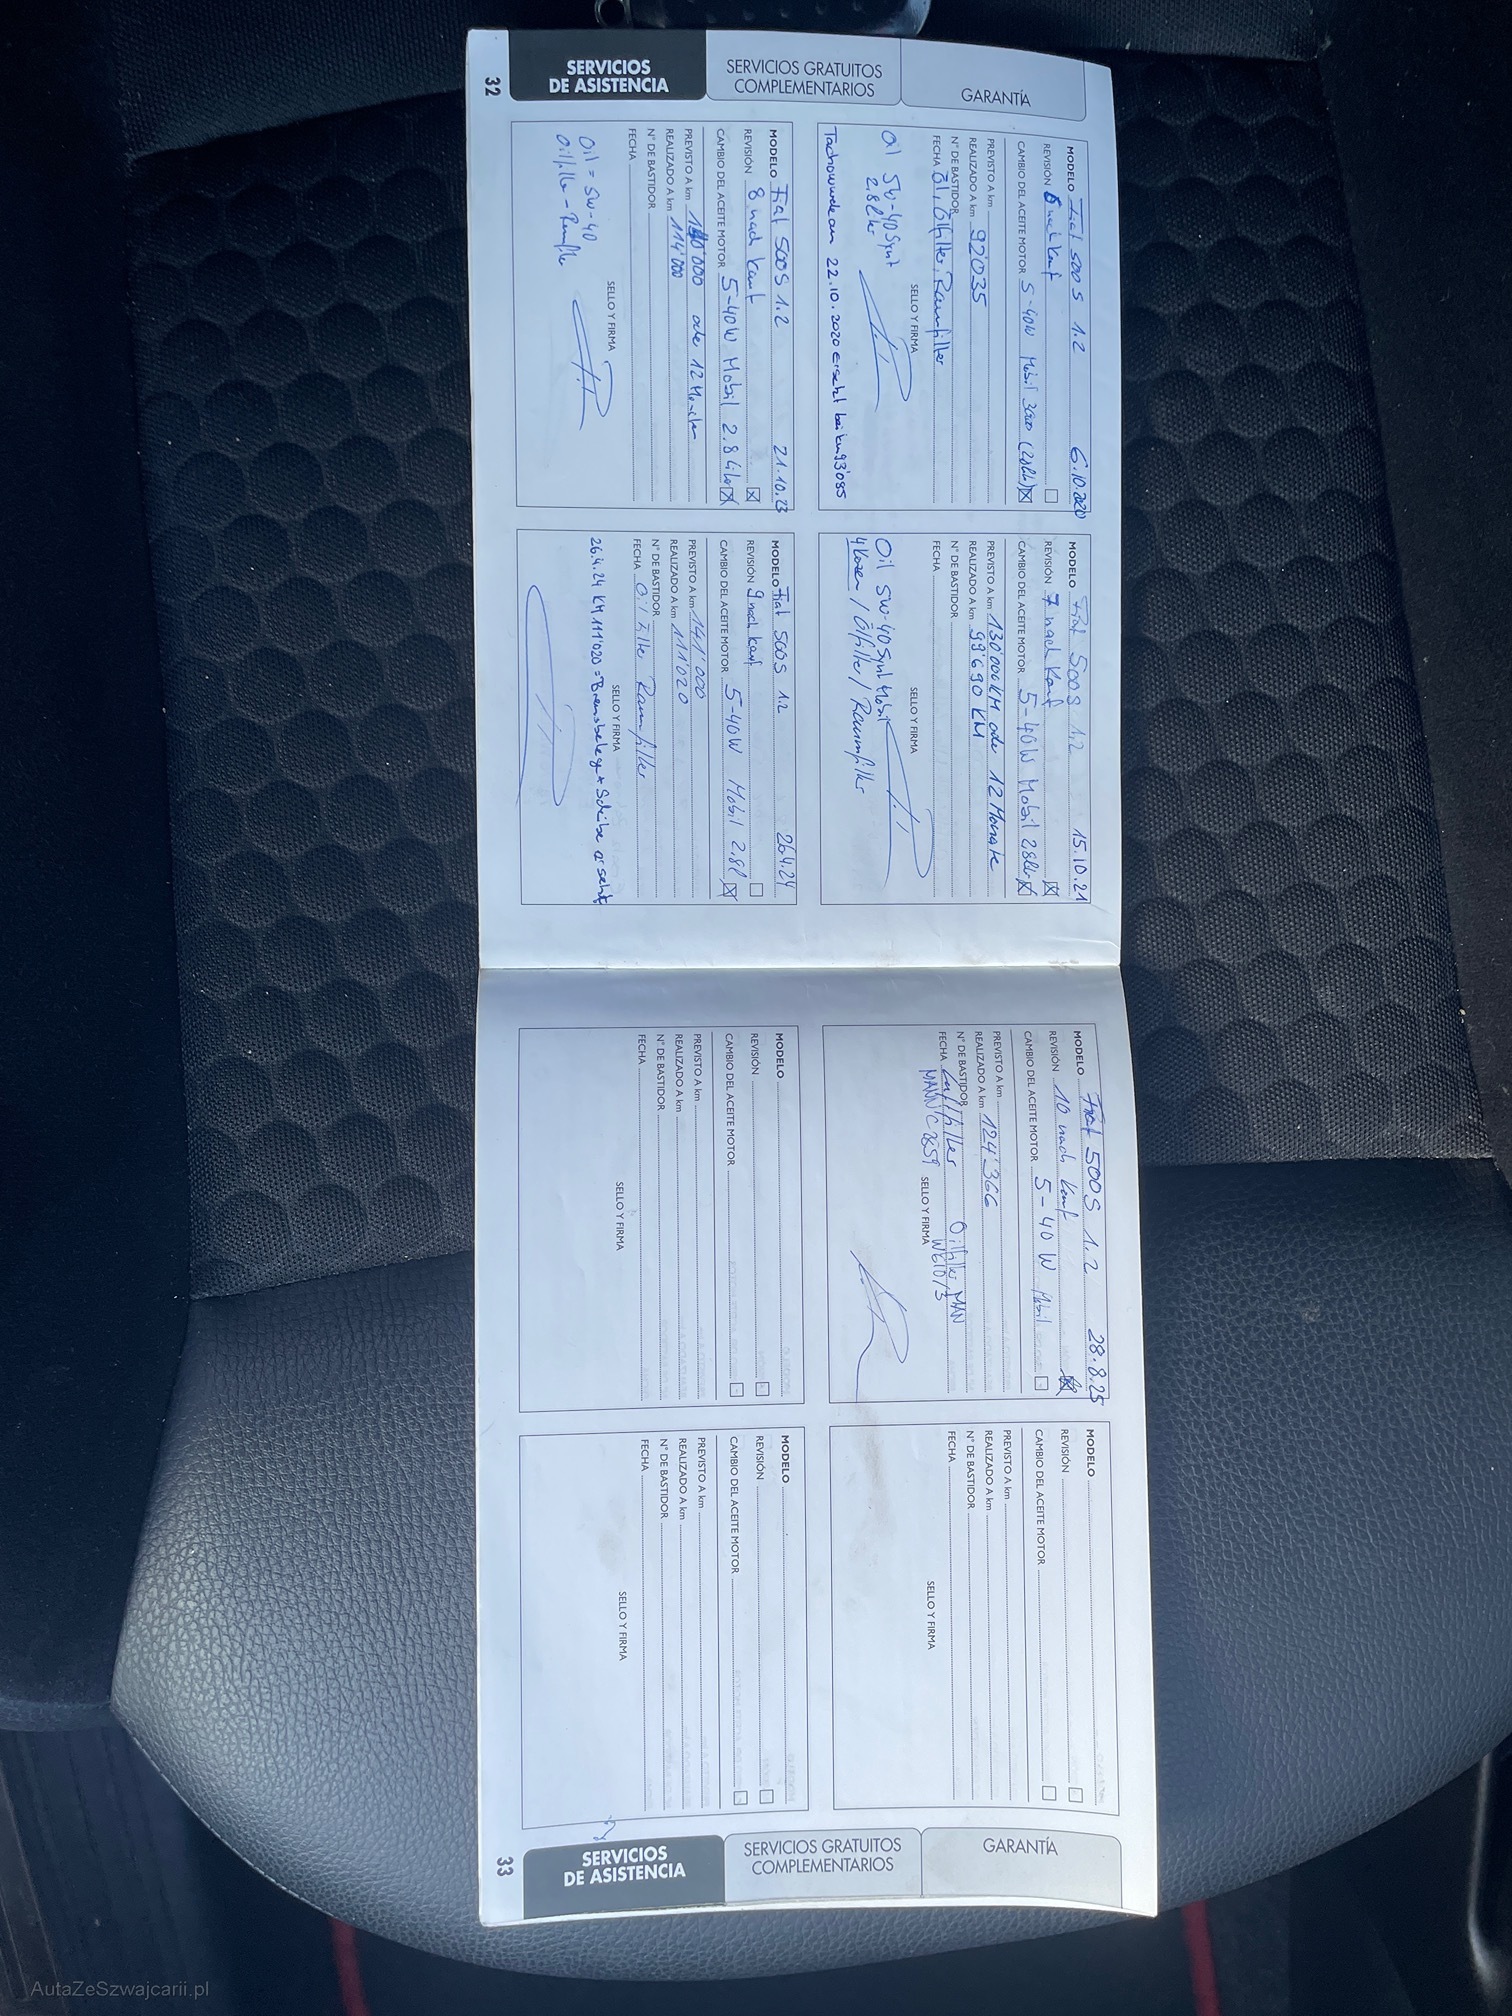 32
SERVICIOS
DE ASISTENCIA
SERVICIOS GRATUITOS
COMPLEMENTARIOS
GARANTÍA
MODELO Fiat 500S 1.2 6.10.2020
REVISIÓN 6 nach Kauf
CAMBIO DEL ACEITE MOTOR 5-40W Mobil 3000
PREVISTO A km
REALIZADO A km 92'035
N° DE BASTIDOR
FECHA Öl, Ölfilter, Raumfilter
SELLO Y FIRMA
Oil 5W-40 Synt
2.8 liter
22.10.2020 ersetzt bei km 93'085
MODELO Fiat 500S 1.2 15.10.21
REVISIÓN 7 nach Kauf
CAMBIO DEL ACEITE MOTOR 5-40W Mobil
PREVISTO A km 130'000 KM oder 12 Monate
REALIZADO A km 99'690 KM
N° DE BASTIDOR
FECHA
SELLO Y FIRMA
Oil 5W-40 Synt Mobil
/ Ölfilter / Raumfilter
MODELO Fiat 500S 1.2 21.10.23
REVISIÓN 8 nach Kauf
CAMBIO DEL ACEITE MOTOR 5-40W Mobil 2.8 Liter
PREVISTO A km oder 12 Monaten
REALIZADO A km 114'000
N° DE BASTIDOR
FECHA
SELLO Y FIRMA
Oil = 5W-40
Oilfilter -
MODELO Fiat 500S 1.2 26.4.24
REVISIÓN 9 nach Kauf
CAMBIO DEL ACEITE MOTOR 5-40W Mobil 2.8l
PREVISTO A km 141'000
REALIZADO A km 111'020
N° DE BASTIDOR
FECHA Raumfilter
SELLO Y FIRMA
26.4.24 KM 111'020 =
MODELO Fiat 500S 1.2 28.8.25
REVISIÓN 10 nach Kauf
CAMBIO DEL ACEITE MOTOR 5-40W Mobil
PREVISTO A km
REALIZADO A km 124'366
N° DE BASTIDOR
FECHA Luftfilter Oilfilter MAN
MANN W610/3
SELLO Y FIRMA
MODELO
REVISIÓN
CAMBIO DEL ACEITE MOTOR
PREVISTO A km
REALIZADO A km
N° DE BASTIDOR
FECHA
SELLO Y FIRMA
MODELO
REVISIÓN
CAMBIO DEL ACEITE MOTOR
PREVISTO A km
REALIZADO A km
N° DE BASTIDOR
FECHA
SELLO Y FIRMA
MODELO
REVISIÓN
CAMBIO DEL ACEITE MOTOR
PREVISTO A km
REALIZADO A km
N° DE BASTIDOR
FECHA
SELLO Y FIRMA
33
SERVICIOS
DE ASISTENCIA
SERVICIOS GRATUITOS
COMPLEMENTARIOS
GARANTÍA
AutaZeSzwajcarii.pl